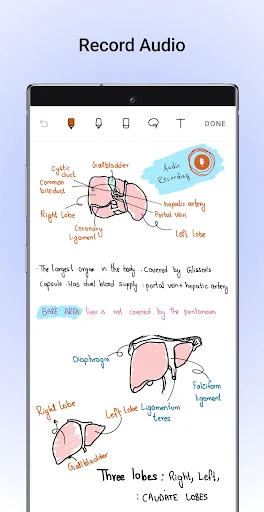 Record Audio
T DONE
Gallbladder
Cystic
duct
Common
bile duct
Audio
Recording
hepatic artery
Portal vein
Right lobe
Left lobe
Coronary
ligament
· The largest organ in the body · Covered by Glisson's
Capsule · Has dual blood supply : portal vein + hepatic artery
BARE AREA: liver is not covered by the peritoneum
Diaphragm
Falciform
ligament
Right lobe
Left lobe
Ligamentum
teres
Gallbladder
Three lobes : Right, Left,
: CAUDATE LOBES